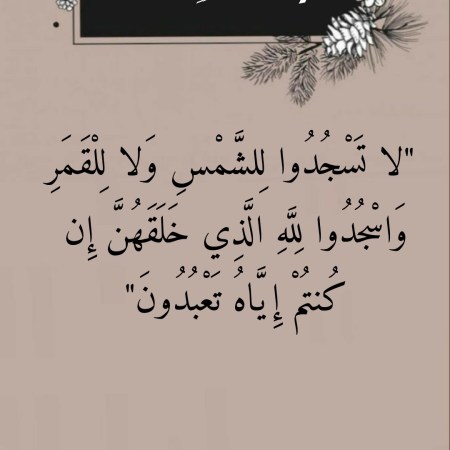 "لا تَسْجُدُوا لِلشَّمْسِ وَلا لِلْقَمَرِ
وَاسْجُدُوا لِلَّهِ الَّذِي خَلَقَهُنَّ إِن
كُنتُمْ إِيَّاهُ تَعْبُدُونَ"